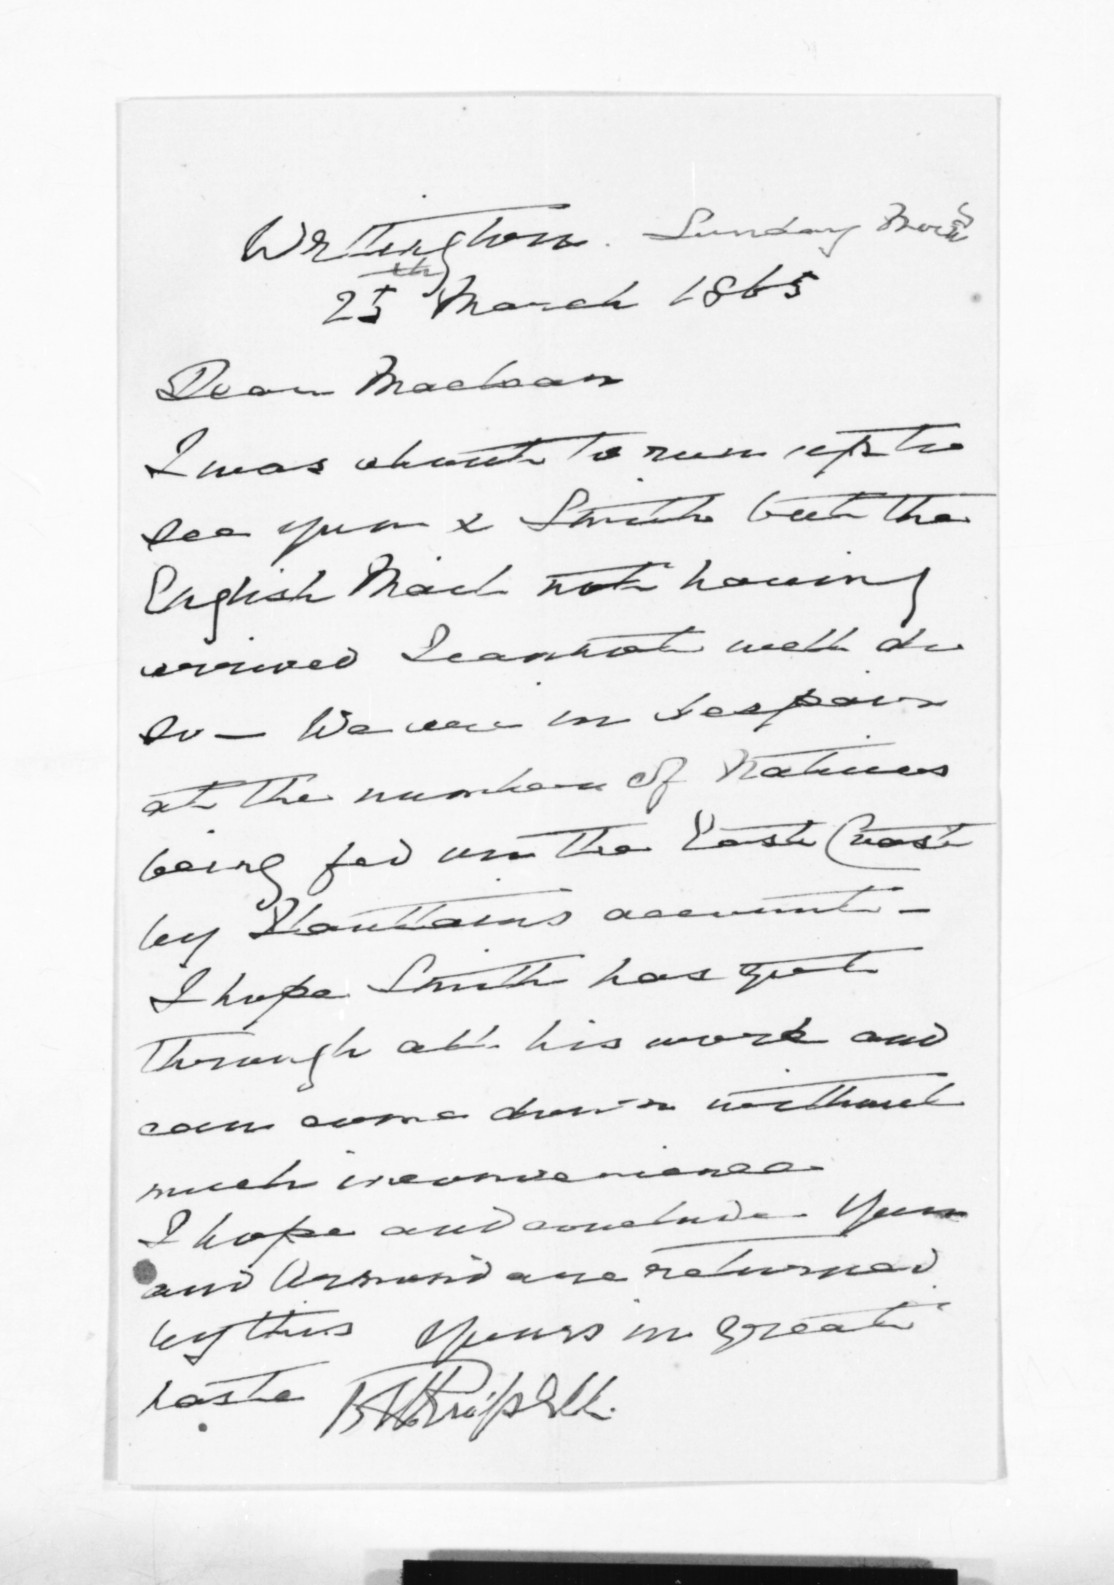 Wellington. Sunday
25th March 1865
Dear Maclean
I was about to run up to
see you & Smith but the
English Mail not having
arrived I cannot well do
so — We are in despair
at the number of Natives
being fed on the East Coast
by Hamlins account —
I hope Smith has got
through all his work and
can come down without
much inconvenience
I hope and conclude you
and Ormond are returned
by this Yours in great
haste